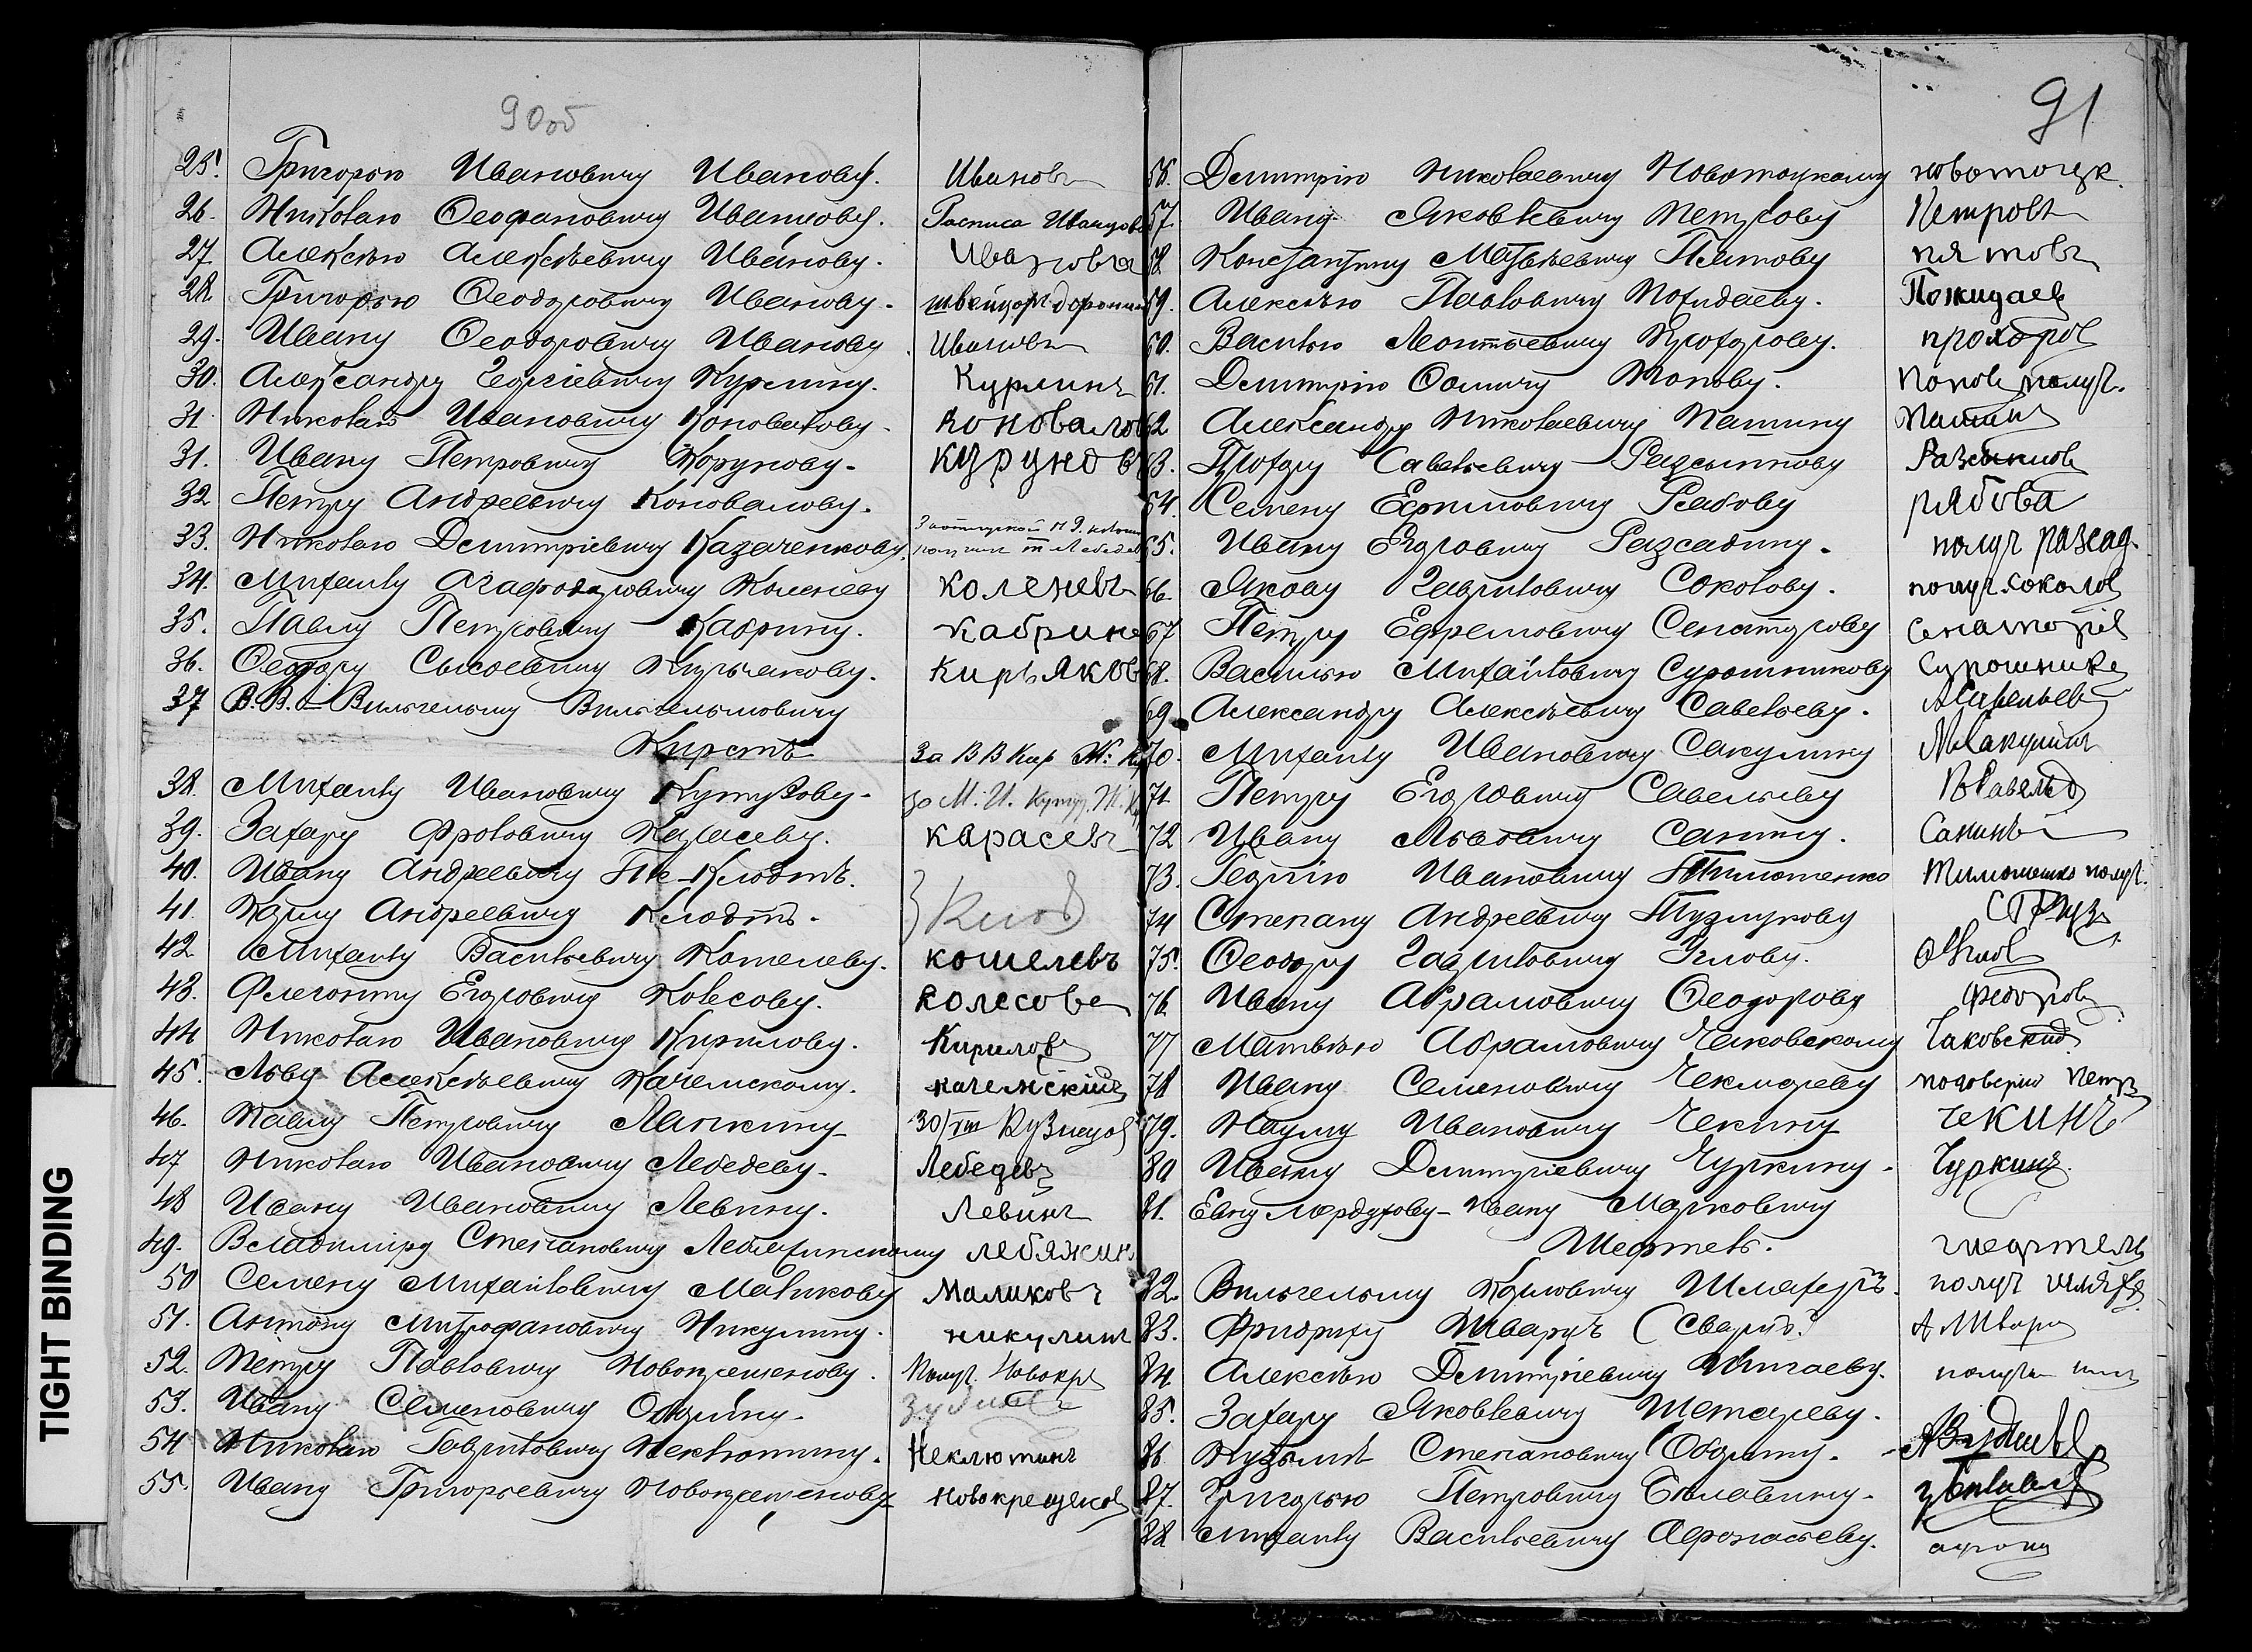 90об
25. Григорью Ивановичу Иванову. Ивановъ
26. Николаю Ѳеофановичу Иванцову. Росписа Иванцовъ
27 Алексѣю Алексѣевичу Иванову. Ивановъ
28. Григорью Ѳеодоровичу Иванову. швейцор доронин
29. Ивану Ѳеодоровичу Иванову. Ивановъ
30. Александру Георгіевичу Курлину. Курлинъ
31. Николаю Ивановичу Коновалову. Коновалов
31. Ивану Петровичу Корунову. Курунов
32 Петру Андреевичу Коновалову.
33. Николаю Дмитріевичу Казаченкову. получил Лебедев
34. Михаилу Агафодоровичу Коленеву коленевъ
35. Павлу Петровичу Кабрину. Кабрине
36. Ѳеодору Сысоевичу Кирьякову. Кирьяков
37 В.В. Вильгельму Вильгельмовичу
Кирстъ За В В Кир Ж. К
38. Михаилу Ивановичу Кутузову. за М. И. Кутуз. Ж. К
39. Захару Фроловичу Карасеву. карасевъ
40. Ивану Андреевичу Клодтъ.
41. Карлу Андреевичу Клодтъ. Клод
42 Михаилу Васильевичу Кошелеву. кошелевъ
43. Флегонту Егоровичу Колесову. Колесовъ
44 Николаю Ивановичу Кирилову. Кириловъ
45. Льву Алексѣевичу Качемскому. качемскій
46. Павлу Петровичу Ланкину 30/VIII Кузнецов
47 Николаю Ивановичу Лебедеву. Лебедевъ
48 Ивану Ивановичу Левину. Левинъ
49. Владиміру Степановичу Лебяжинскому лебяжин
50 Семену Михаиловичу Маликову Маликовъ
51. Антону Митрофановичу Никулину. никулинъ
52. Петру Павловичу Новокрещенову. Получ. Новокре
53. Ивану Семеновичу
54 Николаю Гавриловичу Неклютину. Неклютинъ
55. Ивану Григорьевичу Новокрещенову Новокрещенов
91
56. Дмитрію Николаевичу Новотоцкому новотоцк.
57. Ивану Яковлевичу Петрову Петровъ
58. Константину Матвѣевичу Пятову пятовъ
59. Алексѣю Павловичу Пожидаеву. Пожидаев
60. Василью Леонтьевичу Прохорову. прохоров
61. Дмитрію Ѳомичу Попову. Попов получ.
62 Александру Николаевичу Пашину Пашинъ
63. Прохору Савельевичу Разсыпнову Разсыпнов
64. Семену Ефимовичу Рябову рябова
65. Ивану Егоровичу Разсадину. получ разсад.
66. Якову Гавриловичу Соколову. получ. соколов
67 Петру Ефремовичу Сенаторову Сенаторов
68. Василью Михаиловичу Сурошникову Сурошников
69. Александру Алексѣевичу Савельеву. АСавельев
70. Михаилу Ивановичу Сакулину МСакулинъ
71 Петру Егоровичу Савельеву
72 Ивану Львовичу Санину. Санинъ
73. Георгію Ивановичу Тимошенко Тимошенко получ.
74 Степану Андреевичу Тузлукову СТузл
75. Ѳеодору Гавриловичу Углову.
76 Ивану Абрамовичу Ѳеодорову Федоров
77 Матвѣю Абрамовичу Чаковскому Чаковский
78 Ивану Семеновичу Чекмареву подоверію Петр
79. Науму Ивановичу Чекину чекинъ
80 Ивану Дмитріевичу Чуркину. Чуркинъ
81. Евну Мордухову-Ивану Марковичу
Шефтель. шефтель
82. Вильгельму Карловичу Шляферъ. получ шляфер
83. Фридриху Шварцъ (Сварцъ) А Шварц
84. Алексѣю Дмитріевичу получил
85. Захару Яковлевичу
86. Кузьмѣ Степановичу
87. Григорью Петровичу Бѣлавину.
88 Михаилу Васильевичу Афонасьеву. афона
TIGHT BINDING